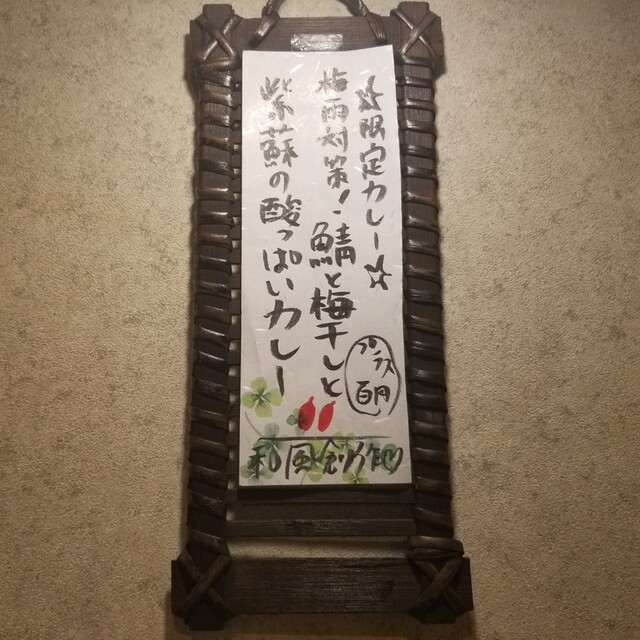 ☆限定カレー☆
梅雨対策！鯖と梅干しと
紫蘇の酸っぱいカレー
プラス
百円
和風創作